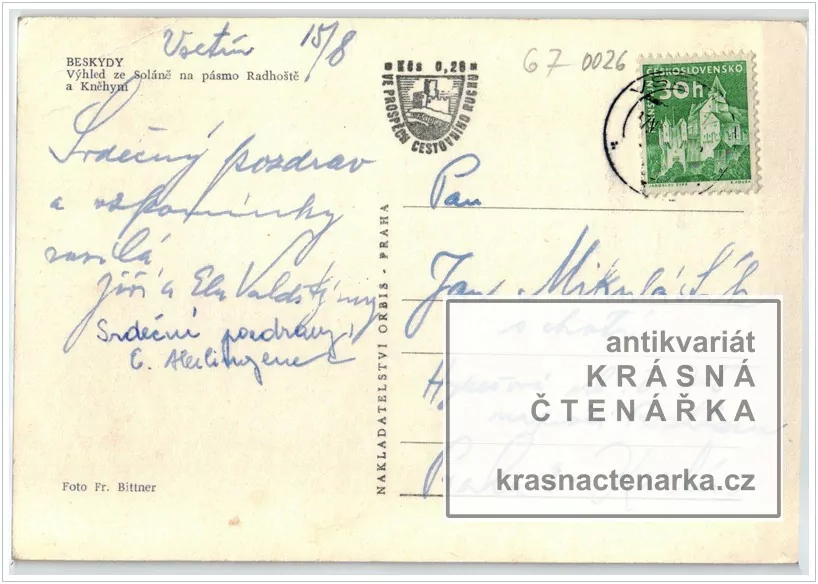 Vsetín 15/8
BESKYDY
Výhled ze Soláně na pásmo Radhoště
a Kněhyni
Kčs 0,20
VE PROSPĚCH CESTOVNÍHO RUCHU
67 0026
ČESKOSLOVENSKO
30h
Srdečný pozdrav
a vzpomínky
Jiří a Ela
Srdečné pozdravy
E.
Foto Fr. Bittner
NAKLADATELSTVÍ ORBIS - PRAHA
Pan
Jan Mikuláš
s chotí
Praha
antikvariát
KRÁSNÁ
ČTENÁŘKA
krasnactenarka.cz